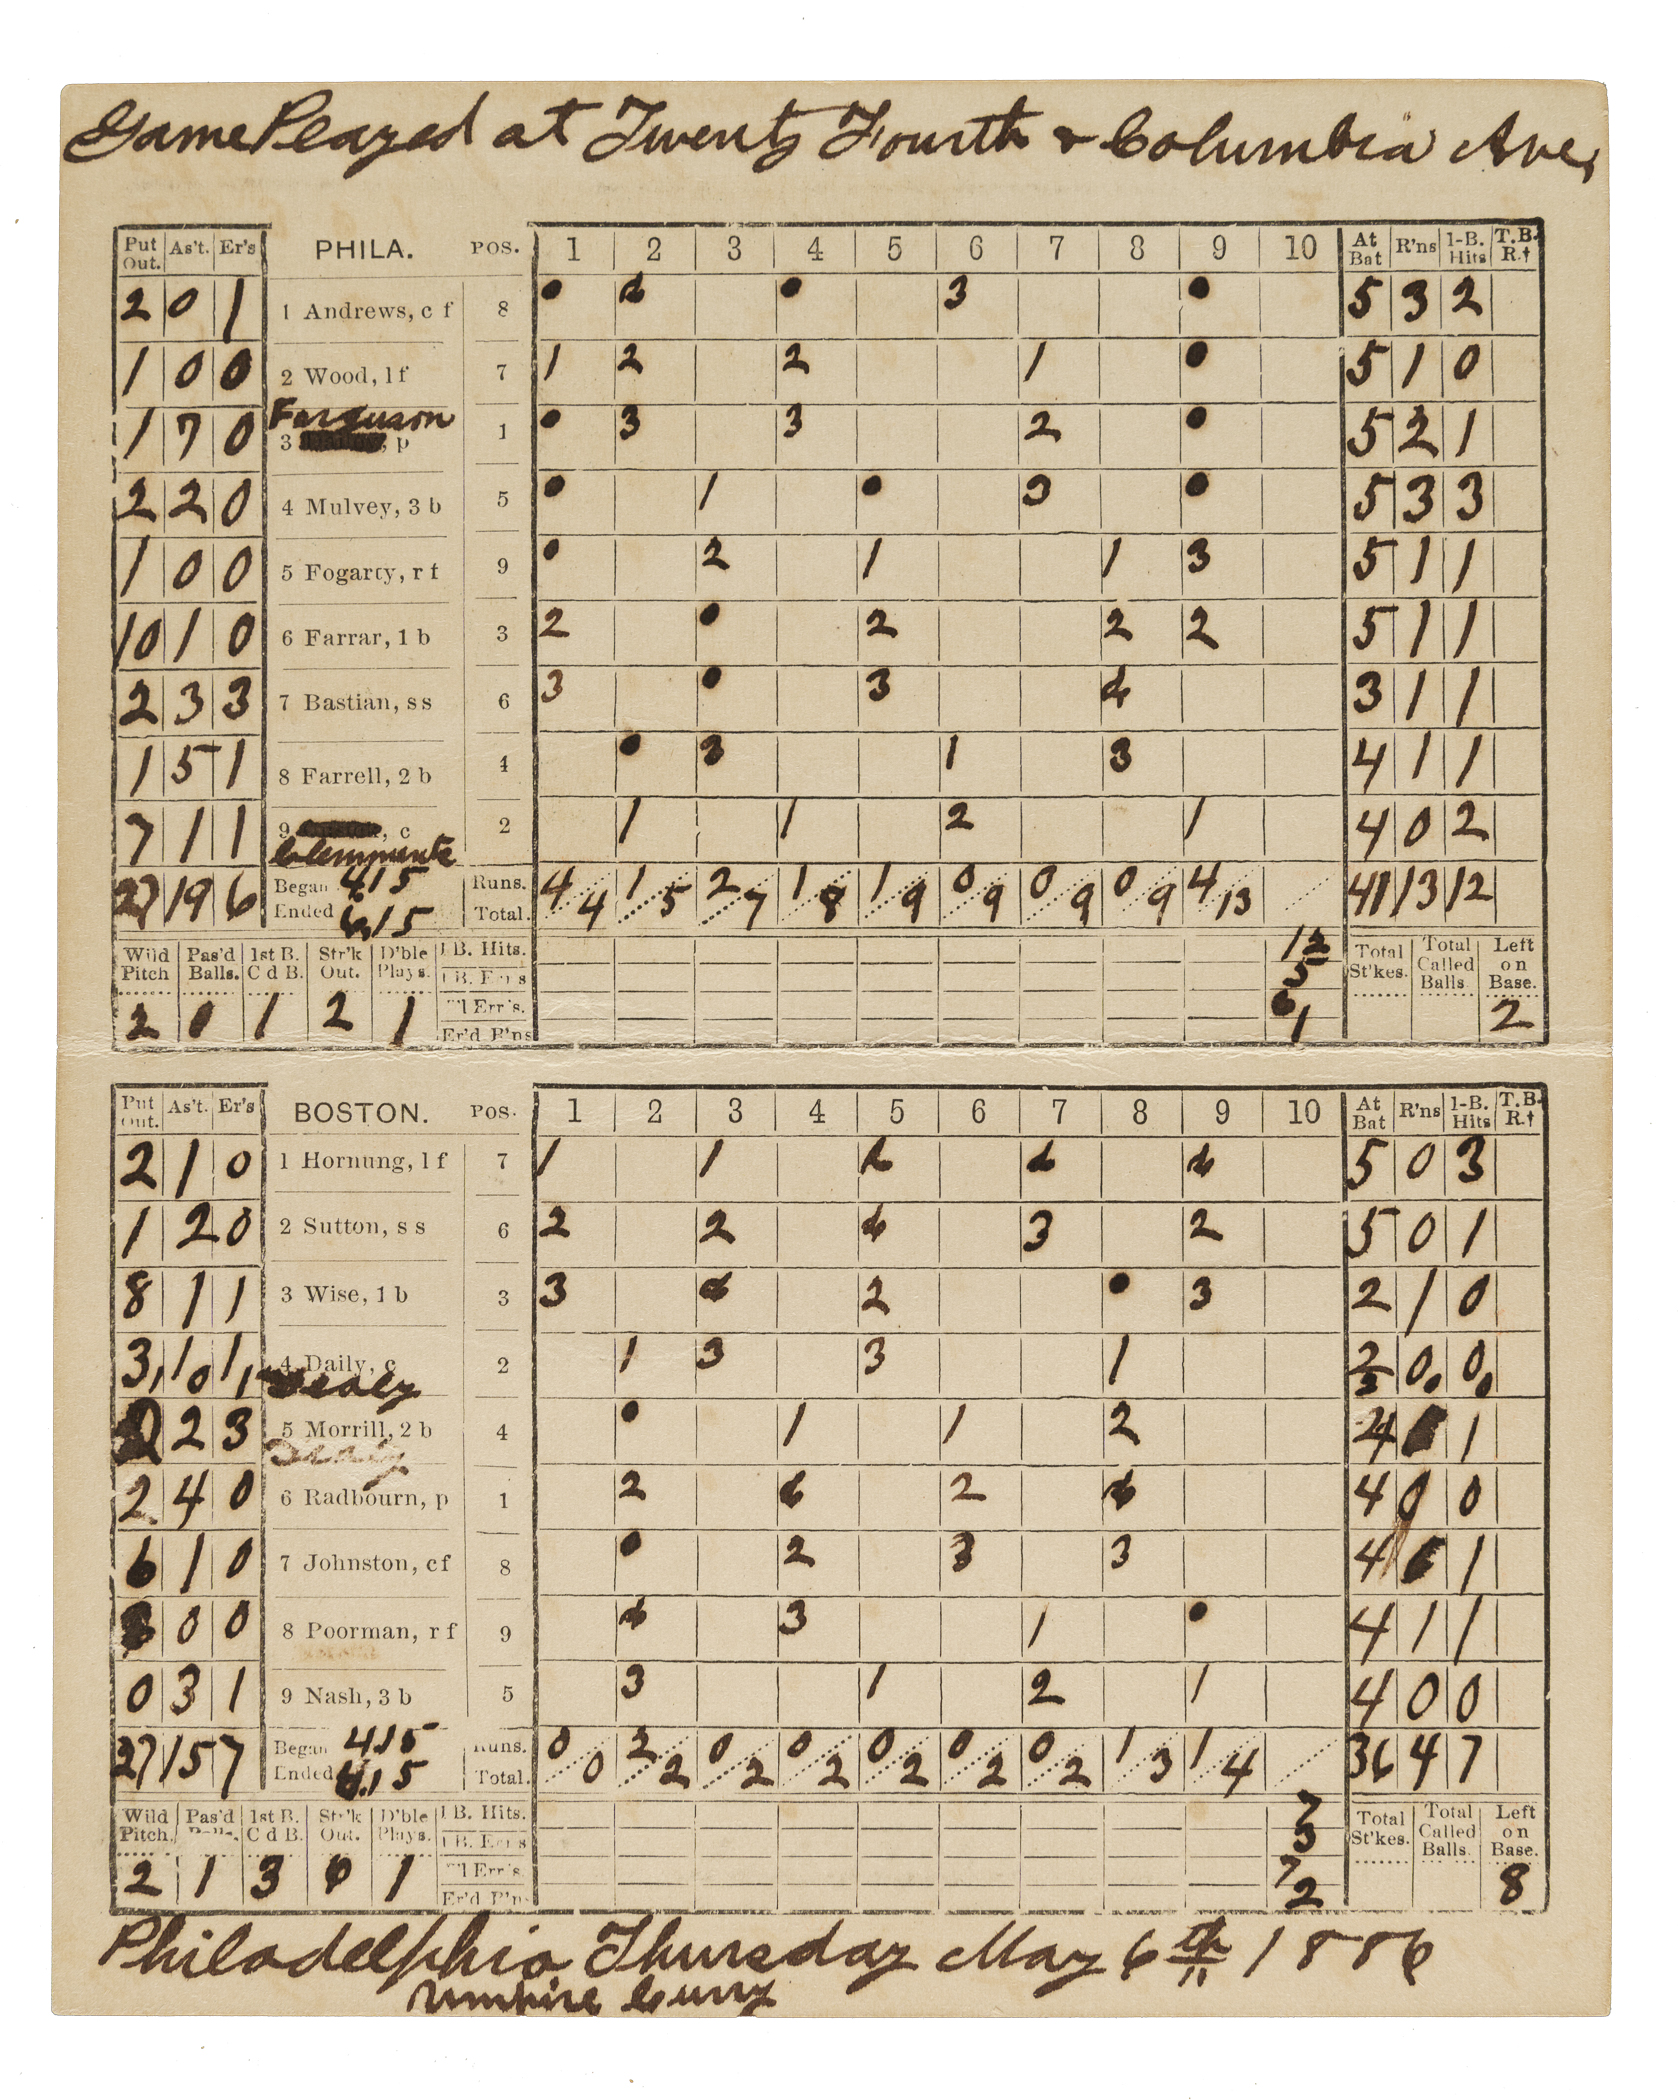 Game Played at Twenty Fourth & Columbia Ave,
Put Out. As't. Er's PHILA. POS. 1 2 3 4 5 6 7 8 9 10 At Bat R'ns 1-B. Hits T.B. R.†
2 0 1 1 Andrews, c f 8 • 4 • 3 • 5 3 2
1 0 0 2 Wood, l f 7 1 2 2 1 • 5 1 0
Ferguson
1 7 0 3 , p 1 • 3 3 2 • 5 2 1
2 2 0 4 Mulvey, 3 b 5 • 1 • 3 • 5 3 3
1 0 0 5 Fogarty, r f 9 • 2 1 1 3 5 1 1
10 1 0 6 Farrar, 1 b 3 2 • 2 2 2 5 1 1
2 3 3 7 Bastian, s s 6 3 • 3 4 3 1 1
1 5 1 8 Farrell, 2 b 4 • 3 1 3 4 1 1
7 1 1 9 , c 2 1 1 2 1 4 0 2
Clemments
27 19 6 Began 415 Runs. 4 1 2 1 1 0 0 0 4 41 13 12
Ended 6,15 Total. 4 5 7 8 9 9 9 9 13
Wild Pitch Pas'd Balls. 1st B. C d B. Str'k Out. D'ble Plays. 1 B. Hits. 12 Total St'kes. Total Called Balls Left on Base.
1 B. Er's 5
T'l Err's. 6
2 0 1 2 1 Er'd R'ns 1 2
Put Out. As't. Er's BOSTON. POS. 1 2 3 4 5 6 7 8 9 10 At Bat R'ns 1-B. Hits T.B. R.†
2 1 0 1 Hornung, l f 7 1 1 4 4 4 5 0 3
1 2 0 2 Sutton, s s 6 2 2 4 3 2 5 0 1
8 1 1 3 Wise, 1 b 3 3 4 2 • 3 2 1 0
3, 10 1, 4 Daily, c 2 1 3 3 1 2 2 0. 0.
Dealy
2 2 3 5 Morrill, 2 b 4 • 1 1 2 4 1 1
Dealy
2 4 0 6 Radbourn, p 1 2 4 2 4 4 0 0
6 1 0 7 Johnston, cf 8 • 2 3 3 4 1
3 0 0 8 Poorman, r f 9 4 3 1 • 4 1 1
0 3 1 9 Nash, 3 b 5 3 1 2 1 4 0 0
27 15 7 Began 415 Runs. 0 2 0 0 0 0 0 1 1 36 4 7
Ended 6.15 Total. 0 2 2 2 2 2 2 3 4
Wild Pitch. Pas'd Balls. 1st B. C d B. Str'k Out. D'ble Plays. 1 B. Hits. 7 Total St'kes. Total Called Balls. Left on Base.
1 B. Er's 5
T'l Err's. 7
2 1 3 6 1 Er'd R'ns 2 8
Philadelphia Thursday May 6th 1886
Umpire Curry